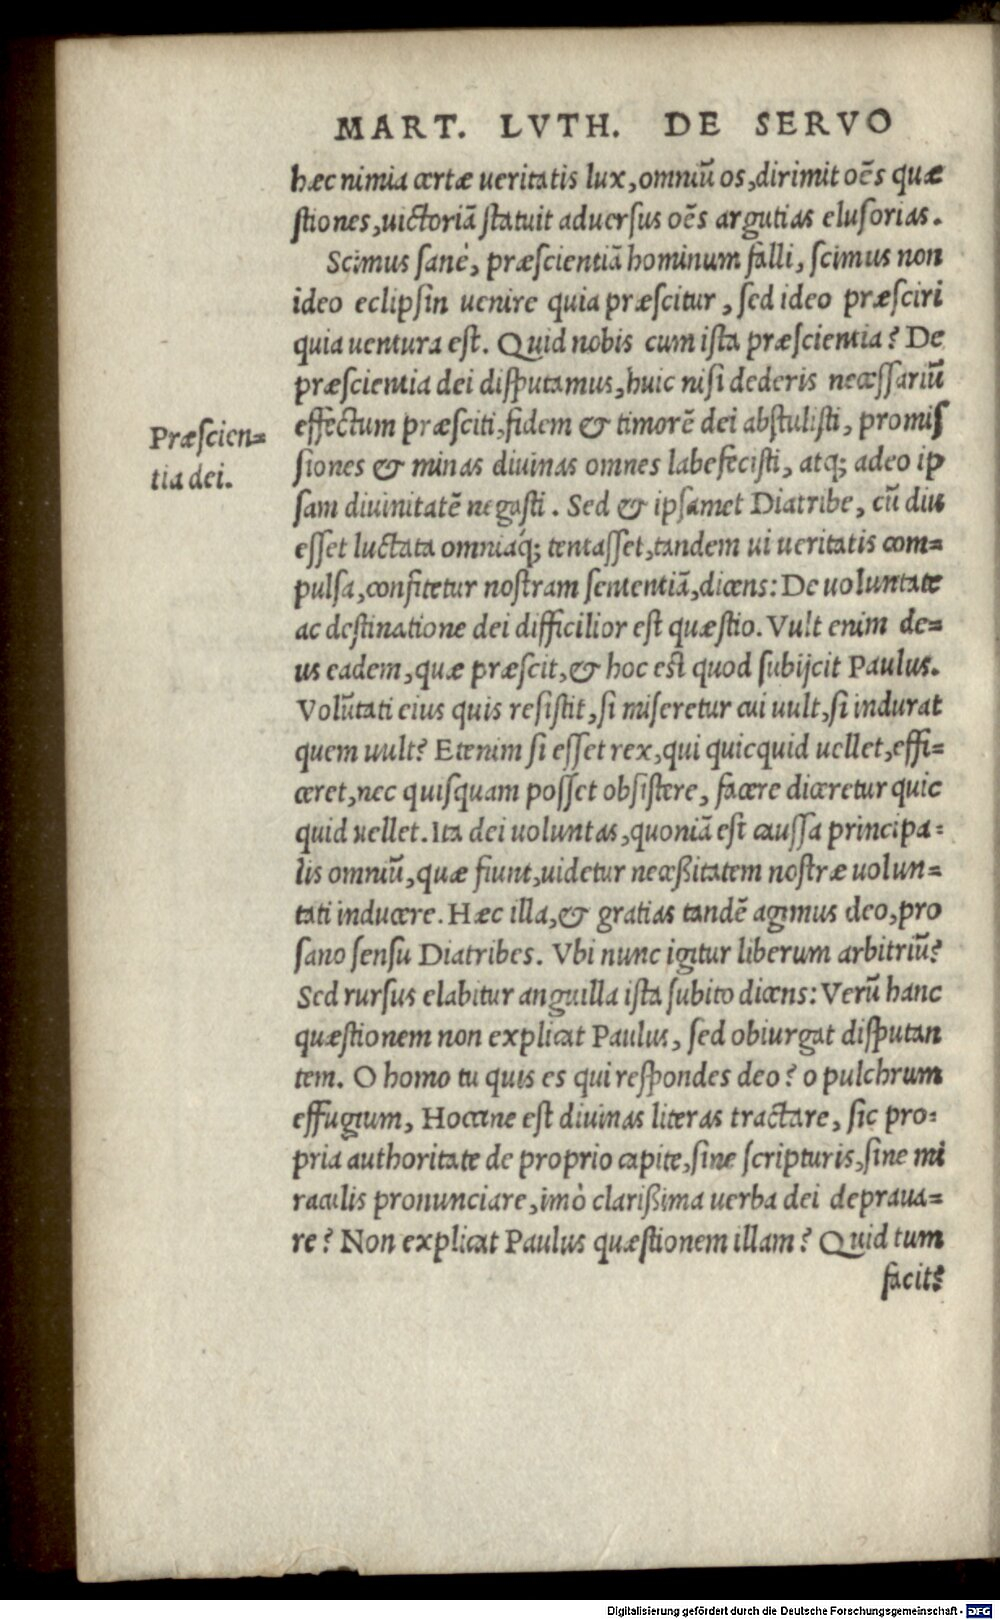 MART. LVTH. DE SERVO
hæc nimia certæ ueritatis lux, omniũ os, dirimit oẽs quæ
stiones, uictoriã statuit aduersus oẽs argutias elusorias.
Scimus sanè, præscientiã hominum falli, scimus non
ideo eclipsin uenire quia præscitur, sed ideo præsciri
quia uentura est. Quid nobis cum ista præscientia? De
præscientia dei disputamus, huic nisi dederis necessariũ
effectum præsciti, fidem & timorẽ dei abstulisti, promis
Præscien=
tia dei.
siones & minas diuinas omnes labefecisti, atq; adeo ip
sam diuinitatẽ negasti. Sed & ipsamet Diatribe, cũ diu
esset luctata omniaq́; tentasset, tandem ui ueritatis com=
pulsa, confitetur nostram sententiã, dicens: De uoluntate
ac destinatione dei difficilior est quæstio. Vult enim de=
us eadem, quæ præscit, & hoc est quod subijcit Paulus.
Volũtati eius quis resistit, si miseretur cui uult, si indurat
quem uult? Etenim si esset rex, qui quicquid uellet, effi=
ceret, nec quisquam posset obsistere, facere diceretur quic
quid uellet. Ita dei uoluntas, quoniã est caussa principa=
lis omniũ, quæ fiunt, uidetur neceßitatem nostræ uolun=
tati inducere. Hæc illa, & gratias tandẽ agimus deo, pro
sano sensu Diatribes. Vbi nunc igitur liberum arbitriũ?
Sed rursus elabitur anguilla ista subito dicens: Verũ hanc
quæstionem non explicat Paulus, sed obiurgat disputan
tem. O homo tu quis es qui respondes deo? o pulchrum
effugium, Hoccine est diuinas literas tractare, sic pro=
pria authoritate de proprio capite, sine scripturis, sine mi
raculis pronunciare, imò clarißima uerba dei depraua=
re? Non explicat Paulus quæstionem illam? Quid tum
facit?
Digitalisierung gefördert durch die Deutsche Forschungsgemeinschaft - DFG